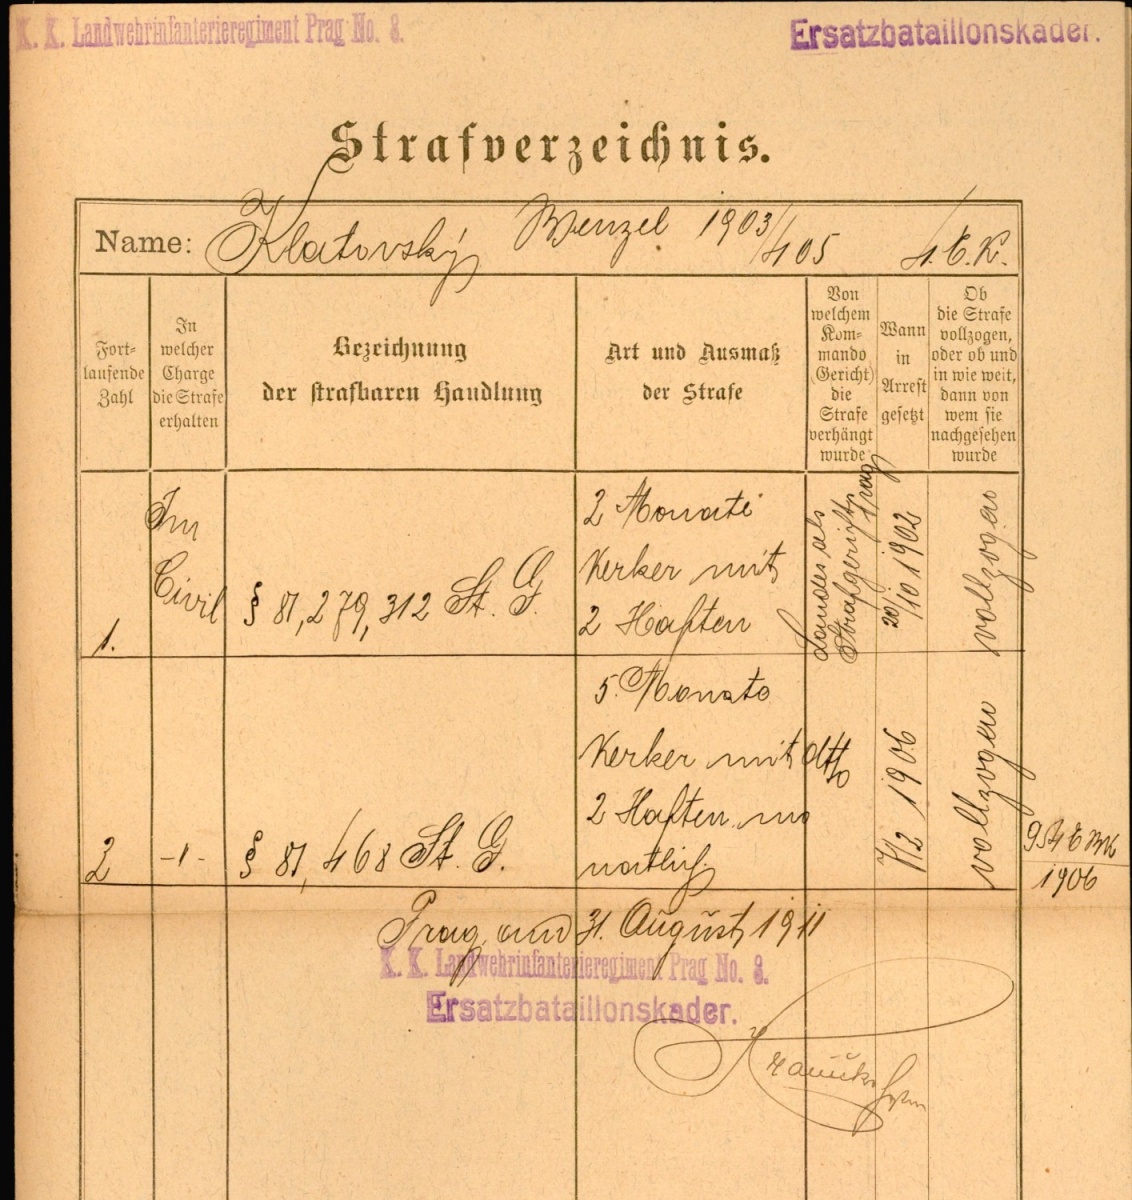 K. K. Landwehrinfanterieregiment Prag No. 8.
Ersatzbataillonskader.
Strafverzeichnis.
Name: Klatovský Wenzel 1903/405 1. E. K.
Fort-
laufende
Zahl
In
welcher
Charge
die Strafe
erhalten
Bezeichnung
der strafbaren Handlung
Art und Ausmaß
der Strafe
Von
welchem
Kom-
mando
(Gericht)
die
Strafe
verhängt
wurde
Wann
in
Arrest
gesetzt
Ob
die Strafe
vollzogen,
oder ob und
in wie weit,
dann von
wem sie
nachgesehen
wurde
1.
Im
Civil
§ 81, 279, 312 St. G.
2 Monate
Kerker mit
2 Haften
Landes als
Strafgericht Prag
20/10 1902
vollzogen
2
-"-
§ 81, 468 St. G.
5 Monate
Kerker mit
2 Haften mo
natlich.
dtto
7/2 1906
vollzogen
954 E BK
1906
Prag, am 31. August 1911
K. K. Landwehrinfanterieregiment Prag No. 8.
Ersatzbataillonskader.